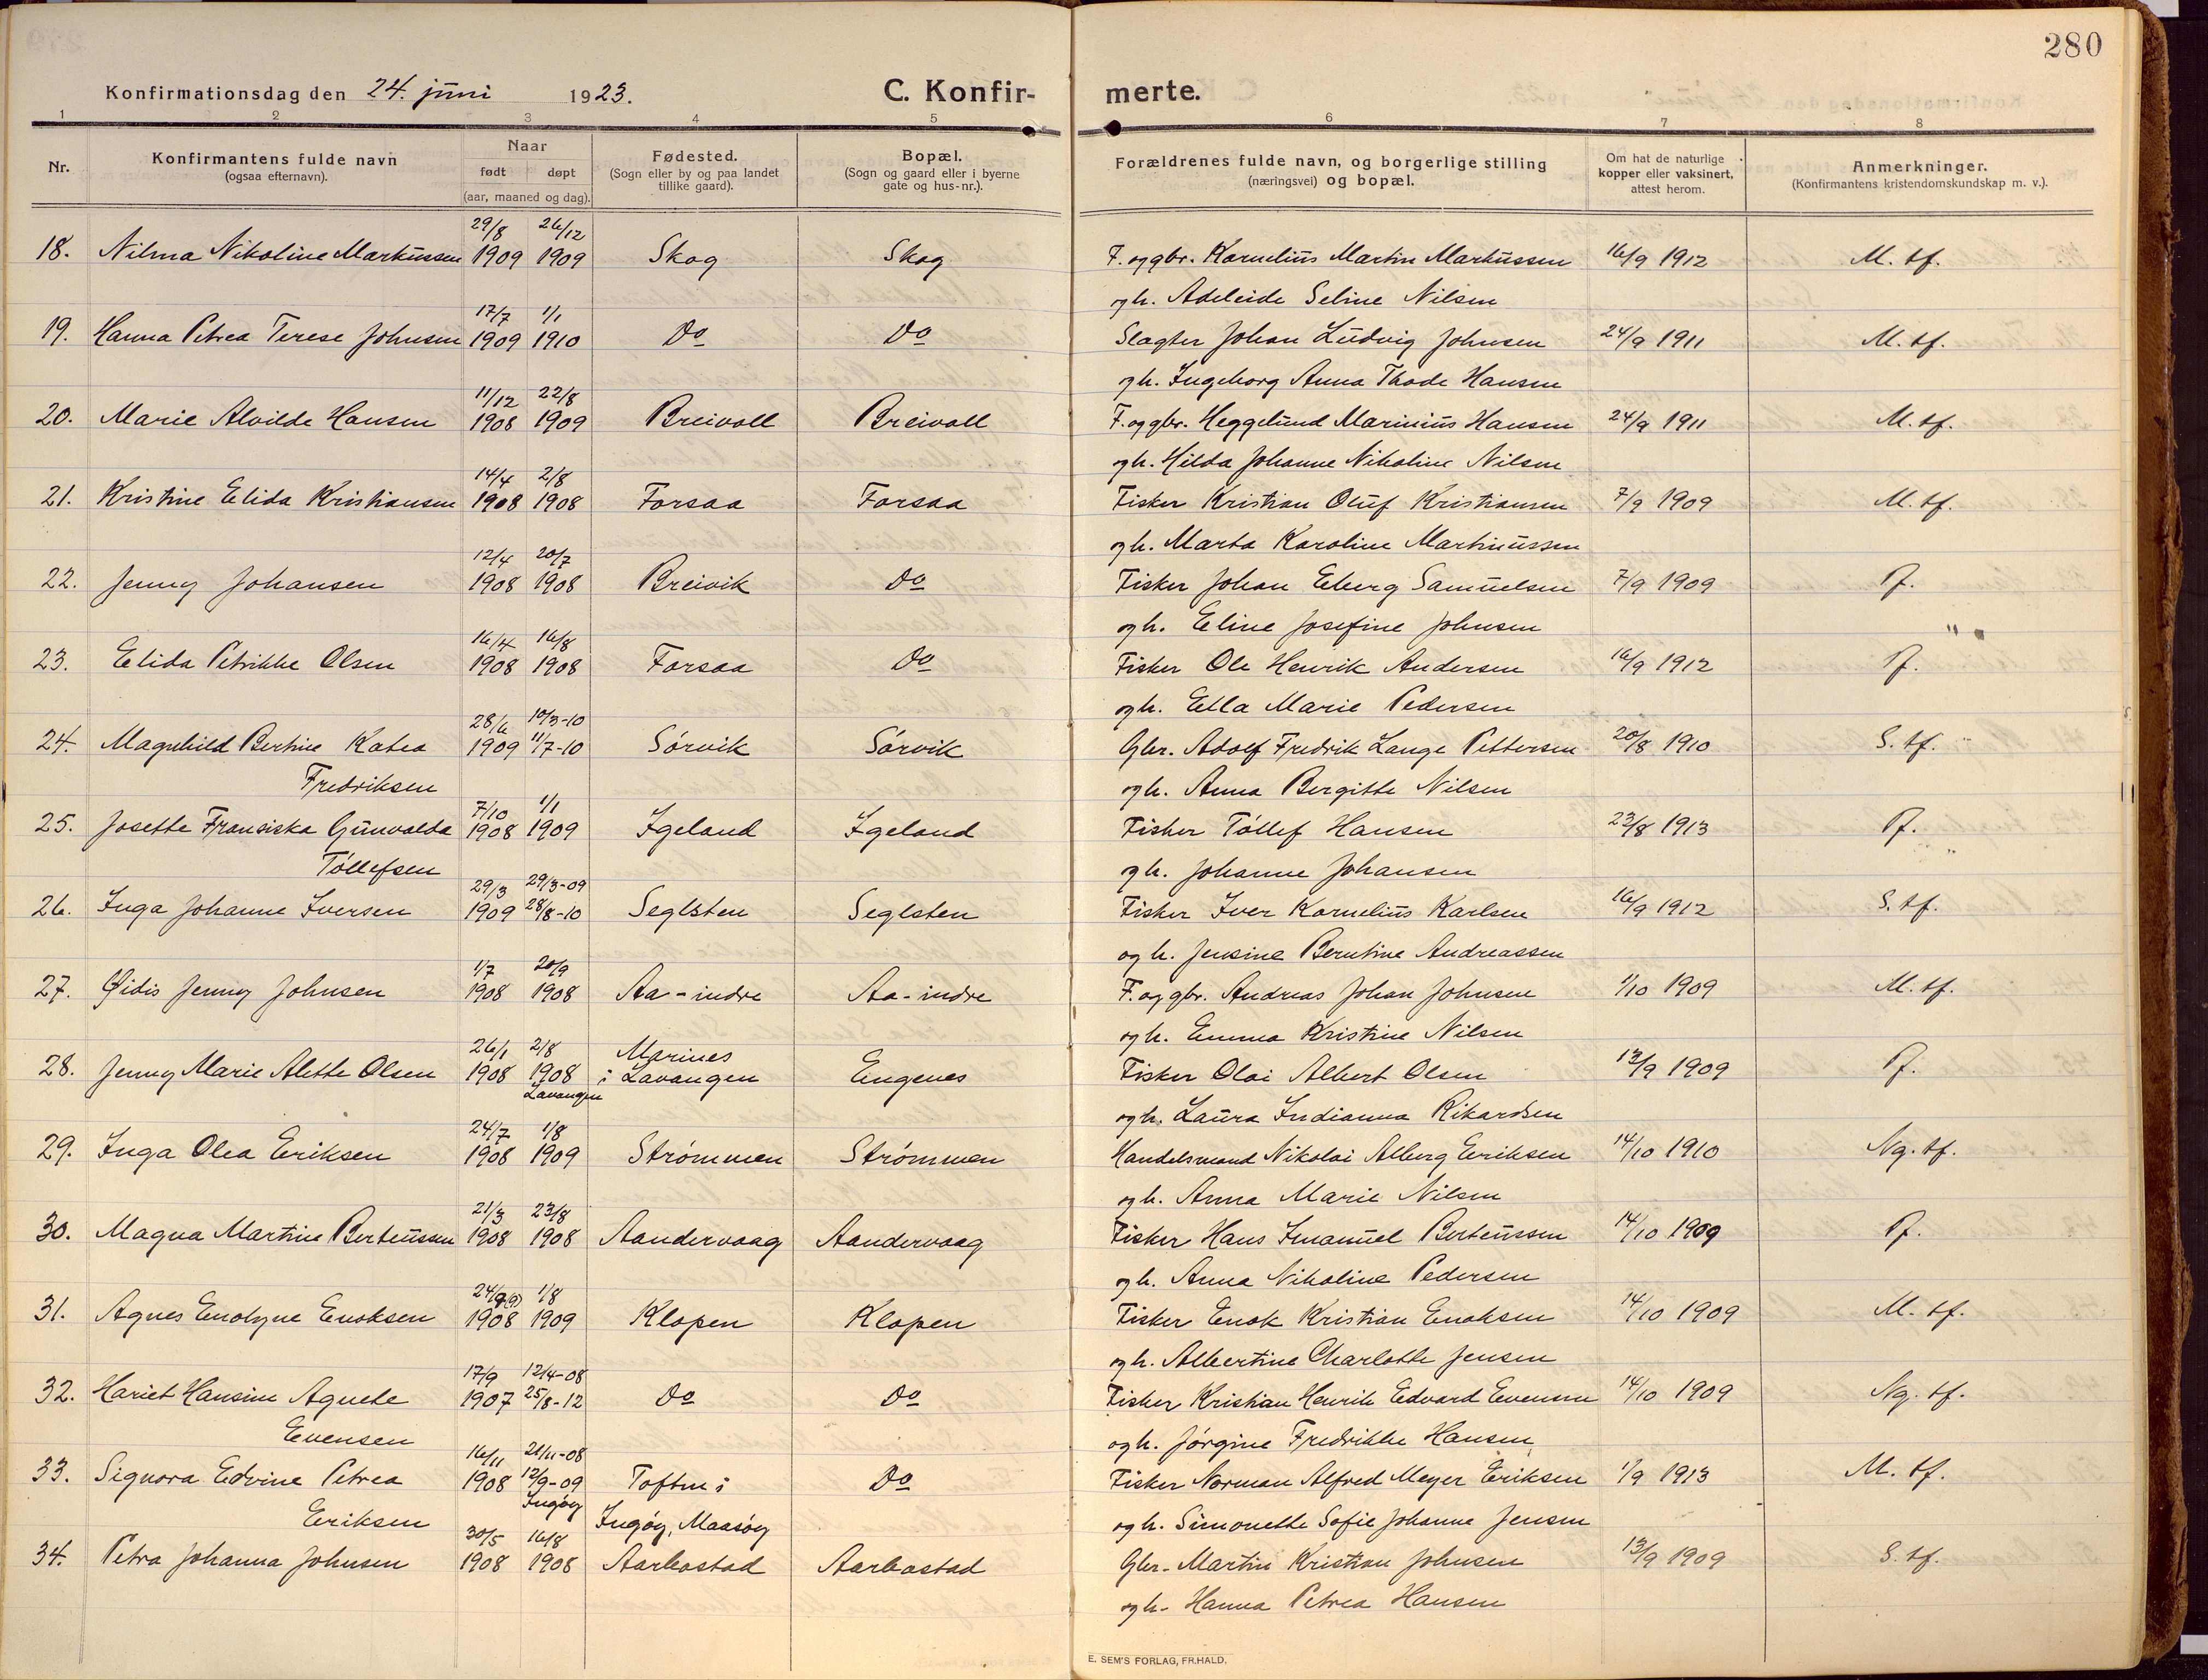 280
Konfirmationsdag den 24. juni 1923.
C. Konfir-
merte.
1 2 3 4 5 6 7 8
Nr.
Konfirmantens fulde navn
(ogsaa efternavn).
Naar
født døpt
(aar, maaned og dag).
Fødested.
(Sogn eller by og paa landet
tillike gaard).
Bopæl.
(Sogn og gaard eller i byerne
gate og hus-nr.).
Forældrenes fulde navn, og borgerlige stilling
(næringsvei) og bopæl.
Om hat de naturlige
kopper eller vaksinert,
attest herom.
Anmerkninger.
(Konfirmantens kristendomskundskap m. v.).
29/8 26/12
18. Nilma Nikoline Markussen 1909 1909 Skog Skog F. og gbr. Kornelius Martin Markussen 16/9 1912 M. tf.
og h. Adeleide Seline Nilsen
17/7 1/1
19. Hanna Petrea Terese Johnsen 1909 1910 Do Do Slagter Johan Ludvig Johnsen 24/9 1911 M. tf.
og h. Ingeborg Anna Thode Hansen
11/12 22/8
20. Marie Alvilde Hansen 1908 1909 Breivoll Breivoll F. og gbr. Heggelund Marinius Hansen 24/9 1911 M. tf.
og h. Hilda Johanne Nikoline Nilsen
14/4 2/8
21. Kristine Elida Kristiansen 1908 1908 Forsaa Forsaa Fisker Kristian Oluf Kristiansen 7/9 1909 M. tf.
og h. Marta Karoline Martinussen
12/4 20/7
22. Jenny Johansen 1908 1908 Breivik Do Fisker Johan Eberg Samuelsen 7/9 1909
og h. Eline Josefine Johnsen
16/4 16/8
23. Elida Petrikke Olsen 1908 1908 Forsaa Do Fisker Ole Henrik Andersen 16/9 1912
og h. Ella Marie Pedersen
28/6 10/3-10
24. Magnhild Bertine Katea 1909 11/7-10 Sørvik Sørvik Gbr. Adolf Fredrik Lange Pettersen 20/8 1910 S. tf.
Fredriksen og h. Anna Bergitte Nilsen
7/10 1/1
25. Josette Fransiska Gunvalda 1908 1909 Igeland Igeland Fisker Tøllef Hansen 23/8 1913
Tøllefsen og h. Johanne Johansen
29/3 29/3-09
26. Inga Johanne Iversen 1909 28/8-10 Seglsten Seglsten Fisker Iver Kornelius Karlsen 16/9 1912 S. tf.
og h. Jensine Berntine Andreassen
1/7 20/9
27. Øidis Jenny Johnsen 1908 1908 Aa-indre Aa-indre F. og gbr. Andreas Johan Johnsen 1/10 1909 M. tf.
og h. Emma Kristine Nilsen
26/1 2/8 Marines
28. Jenny Marie Alette Olsen 1908 1908 i Lavangen Engenes Fisker Olai Albert Olsen 13/9 1909
Lavangen
og h. Laura Indianna Rikardsen
24/7 1/8
29. Inga Olea Eriksen 1908 1909 Strømmen Strømmen Handelsmand Nikolai Alberg Eriksen 14/10 1910 Ng. tf.
og h. Anna Marie Nilsen
21/3 23/8
30. Magna Martine Berteussen 1908 1908 Aandervaag Aandervaag Fisker Hans Imanuel Berteussen 14/10 1909
og h. Anna Nikoline Pedersen
24/9(9) 1/8
31. Agnes Enolyne Enoksen 1908 1909 Klopen Klopen Fisker Enok Kristian Enoksen 14/10 1909 M. tf.
og h. Albertine Charlotte Jensen
17/9 12/4-08
32. Hariet Hansine Agnete 1907 25/8-12 Do Do Fisker Kristian Henrik Edvard Evensen 14/10 1909 Ng. tf.
Evensen og h. Jørgine Fredrikke Hansen
16/11 21/11-08
33. Signora Edvine Petrea 1908 12/9-09 Toften i Do Fisker Norman Alfred Meyer Eriksen 1/9 1913 M. tf.
Ingøy
Eriksen Ingøy, Maasøy og h. Simonette Sofie Johanne Jensen
30/5 16/8
34. Petra Johanna Johnsen 1908 1908 Aarbostad Aarbostad Gbr. Martin Kristian Johnsen 13/9 1909 S. tf.
og h. Hanna Petrea Hansen
E. SEM'S FORLAG, FR.HALD.